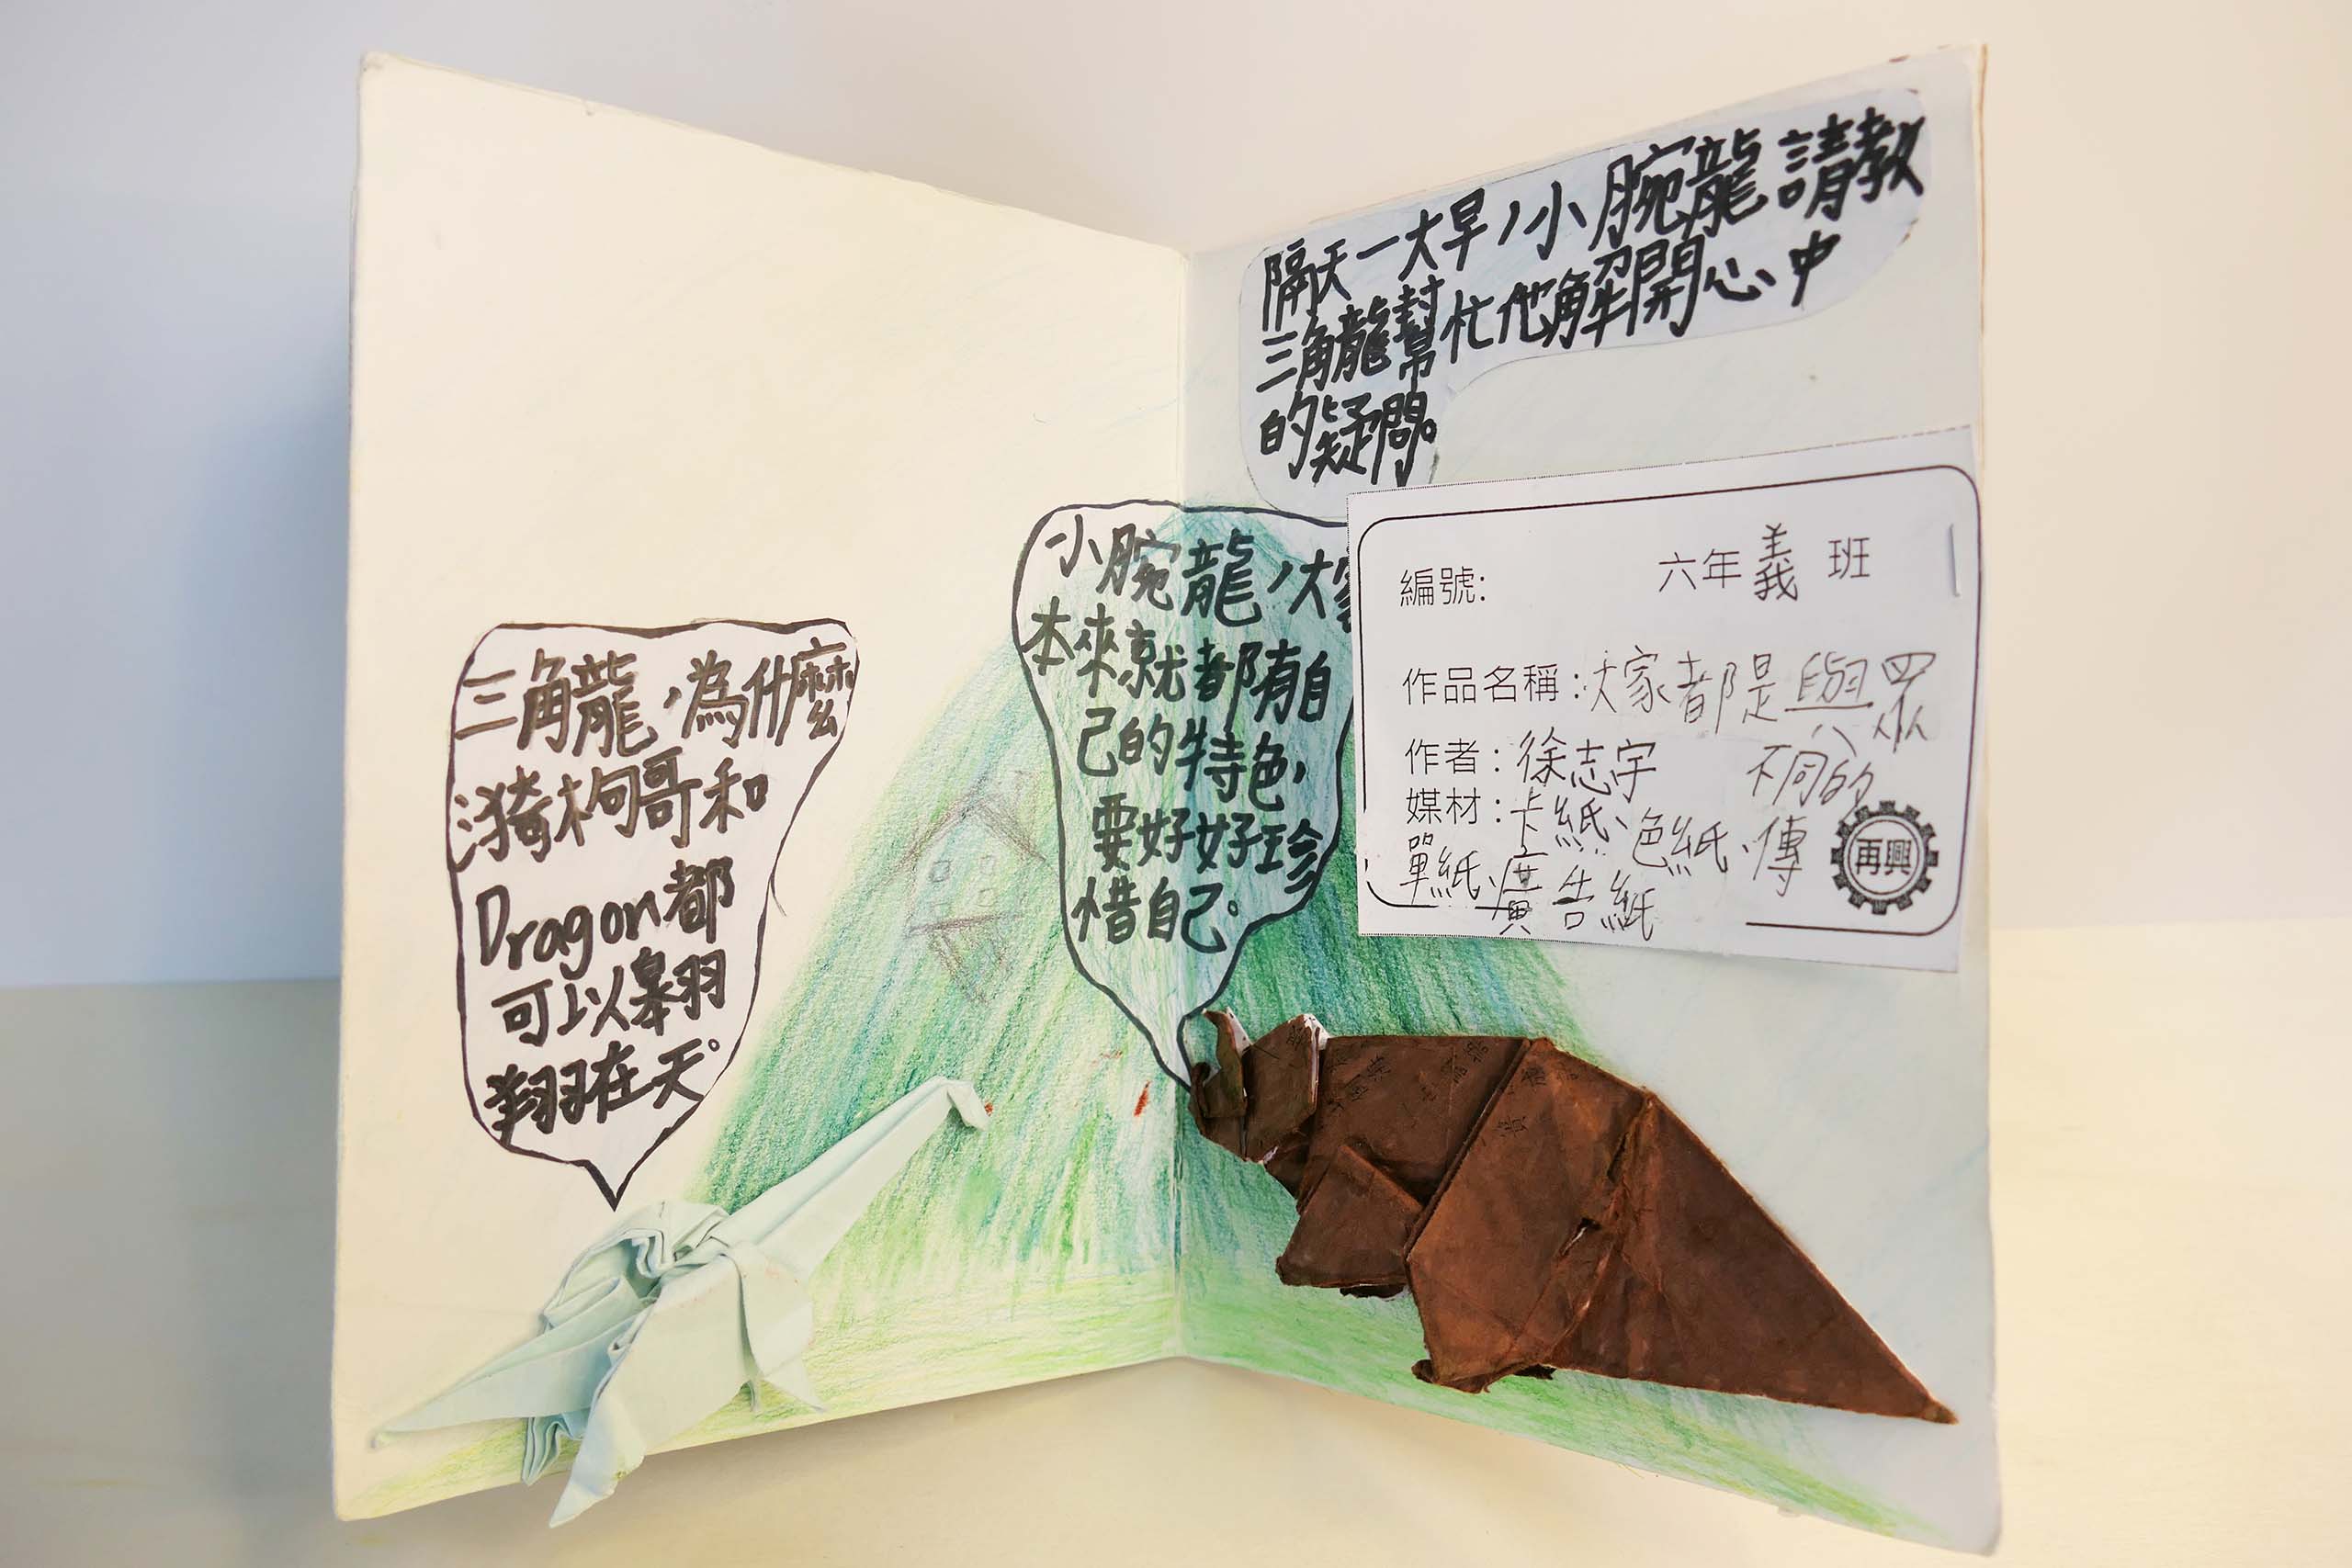 隔天一大早,小腕龍請教
三角龍幫忙他解開心中
的疑問。
三角龍,為什麼
哥和
Dragon都
可以翱
翔在天。
小腕龍,大家
本來就都有自
己的特色,
要好好珍
惜自己。
編號: 六年義班
作品名稱:大家都是與眾
不同的
作者:徐志宇
媒材:卡紙、色紙、傳
單紙、廣告紙
再興